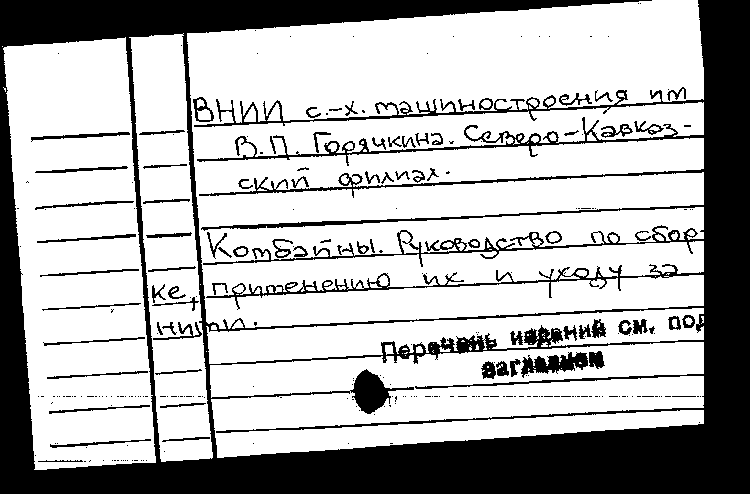 ВНИИ с.-х. машиностроения им
В.П. Горячкина. Северо-Кавказ-
ский филиал.
Комбайны. Руководство по сбор-
ке, применению их и уходу за
ними.
Перечень изданий см. под
заглавием